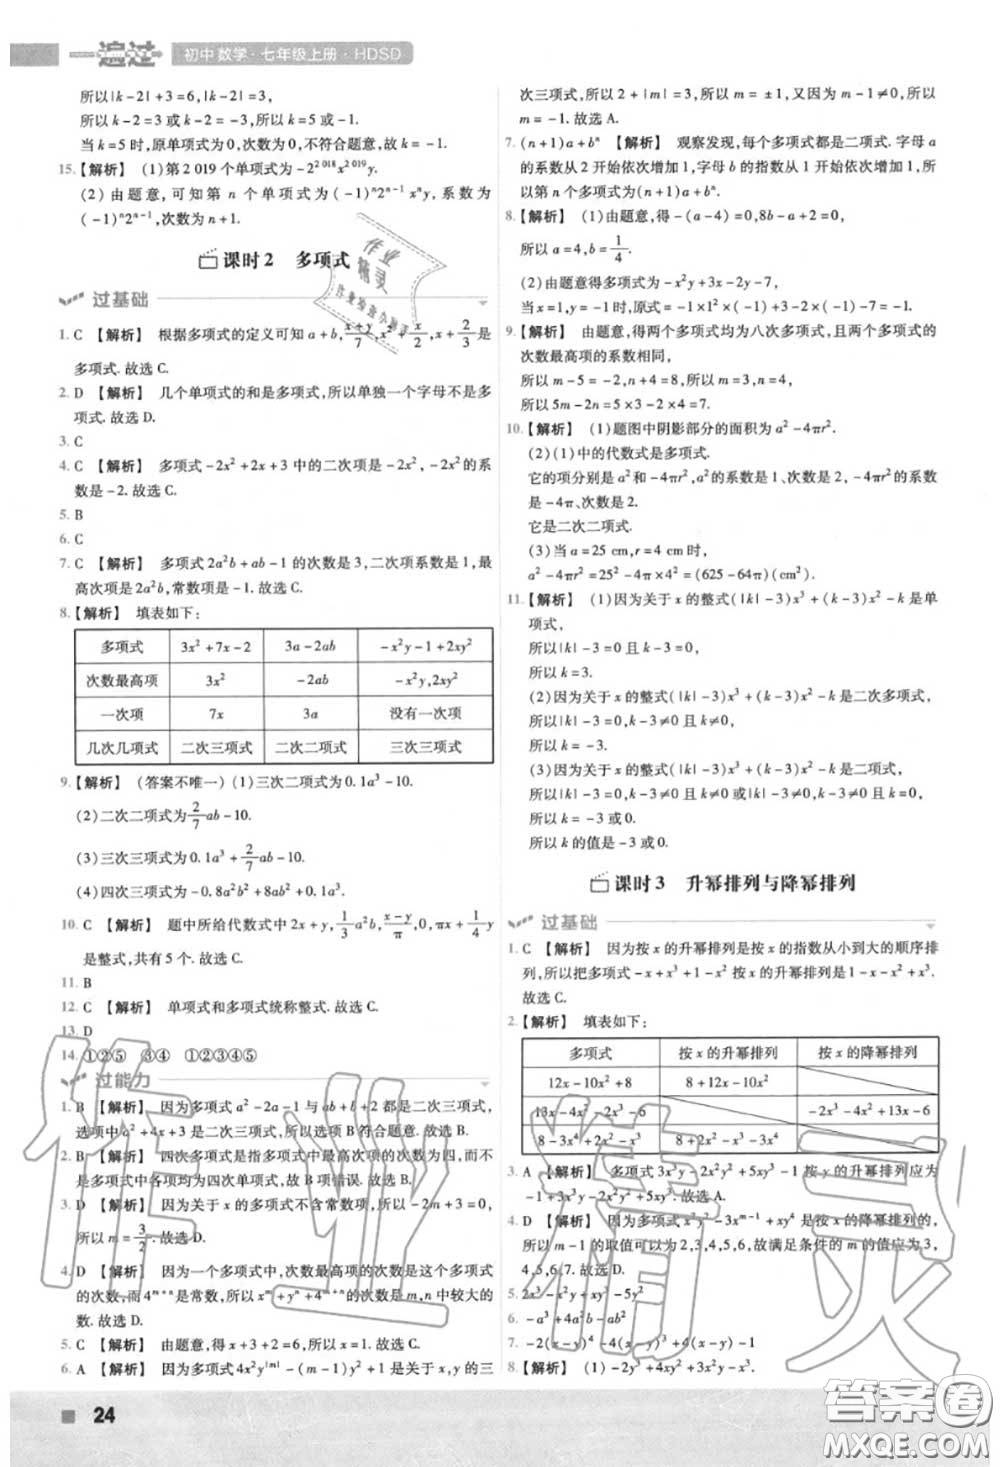 一遍过 初中数学·七年级上册·HDSD
所以|k-2|+3=6,|k-2|=3,
所以 k-2=3 或 k-2=-3,解得 k=5 或 k=-1,
当 k=5 时,原单项式为 0,次数为 0,不符合题意,故 k=-1.
15.【解析】 (1)第 2 019 个单项式为 -2^{2 018}x^{2 019}y.
(2) 由题意,可知第 n 个单项式为 (-1)^n 2^{n-1}x^n y,系数为
(-1)^n 2^{n-1},次数为 n+1.
课时 2 多项式
过基础
1. C 【解析】 根据多项式的定义可知 a+b,(x+y)/7,x²+x/2,x+2/3 是
多项式.故选 C.
2. D 【解析】 几个单项式的和是多项式,所以单独一个字母不是多
项式.故选 D.
3. C
4. C 【解析】 多项式 -2x²+2x+3 中的二次项是 -2x²,-2x² 的系
数是 -2.故选 C.
5. B
6. C
7. C 【解析】 多项式 2a²b+ab-1 的次数是 3,二次项系数是 1,最
高次项是 2a²b,常数项是 -1.故选 C.
8.【解析】 填表如下:
多项式 3x²+7x-2 3a-2ab -x²y-1+2xy²
次数最高项 3x² -2ab -x²y,2xy²
一次项 7x 3a 没有一次项
几次几项式 二次三项式 二次二项式 三次三项式
9.【解析】 (答案不唯一) (1)三次二项式为 0.1a³-10.
(2)二次二项式为 2/7 ab-10.
(3)三次三项式为 0.1a³+2/7 ab-10.
(4)四次三项式为 -0.8a²b²+8ab²+0.1a³.
10. C 【解析】 题中所给代数式中 2x+y,1/3 a²b,(x-y)/π,0.5,x²-y+1/4
是整式,共有 5 个.故选 C.
11. B
12. C 【解析】 单项式和多项式统称整式.故选 C.
13. D
14. ①②⑤ ③④ ①②③④⑤
过能力
1. B 【解析】 因为多项式 a²-2a-1 与 ab+b+2 都是二次三项式,
选项中 a²+4x+3 是二次三项式,所以选项 B 符合题意.故选 B.
2. B 【解析】 四次多项式是指多项式中最高次项的次数为四的多
项式,各项不一定均为四次单项式,故选项 B 错误.故选 B.
3. D 【解析】 因为关于 x 的多项式不含常数项,所以 -2m+3=0,
所以 m=3/2.故选 D.
4. D 【解析】 因为一个多项式中,次数最高项的次数是这个多项式
的次数,而 4^{m+n} 是常数,所以 x^m+y^n+4^{m+n} 的次数是 m,n 中较大的
数.故选 D.
5. C 【解析】 由题意,得 n+3+2=6,所以 n=1.故选 C.
6. A 【解析】 因为多项式 4x²y^{|m|}-(m-1)y²+1 是关于 x,y 的三
次三项式,所以 2+|m|=3,所以 m=±1,又因为 m-1≠0,所以
m=-1.故选 A.
7. (n+1)a+b^n 【解析】 观察发现,每个多项式都是二项式.字母 a
的系数从 2 开始依次增加 1,字母 b 的指数从 1 开始依次增加 1,所
以第 n 个多项式为(n+1)a+b^n.
8.【解析】 (1)由题意,得 -(a-4)=0,8b-a+2=0,
所以 a=4,b=1/4.
(2)由题意得多项式为 -x²y+3x-2y-7,
当 x=1,y=-1 时,原式=-1×1²×(-1)+3×1-2×(-1)-7=-1.
9.【解析】 由题意,得两个多项式均为八次多项式,且两个多项式的
次数最高项的系数相同,
所以 m-5=-2,n+4=8,所以 m=3,n=4,
所以 5m-2n=5×3-2×4=7.
10.【解析】 (1)题图中阴影部分的面积为 a²-4πr².
(2)(1)中的代数式是多项式.
它的项分别是 a² 和 -4πr²,a² 的系数是 1、次数是 2,-4πr² 的系
数是 -4π、次数是 2.
它是二次二项式.
(3)当 a=25 cm,r=4 cm 时,
a²-4πr²=25²-4π×4²=(625-64π)(cm²).
11.【解析】 (1)因为关于 x 的整式(|k|-3)x³+(k-3)x²-k 是单
项式,
所以|k|-3=0 且 k-3=0,
所以 k=3.
(2)因为关于 x 的整式(|k|-3)x³+(k-3)x²-k 是二次多项式,
所以|k|-3=0 且 k-3≠0,
所以 k=-3.
(3)因为关于 x 的整式(|k|-3)x³+(k-3)x²-k 是二项式,
所以|k|-3=0 且 k-3≠0 且 k≠0 或|k|-3≠0 且 k=0,
所以 k 的值是 -3 或 0.
课时 3 升幂排列与降幂排列
过基础
1. C 【解析】 因为按 x 的升幂排列是按 x 的指数从小到大的顺序排
列,所以把多项式 -x+x³+1-x² 按 x 的升幂排列是 1-x-x²+x³.
故选 C.
2.【解析】 填表如下:
多项式 按 x 的升幂排列 按 x 的降幂排列
12x-10x²+8 8+12x-10x²
13x-4x²-2x³-6 -2x³-4x²+13x-6
8-3x⁴+2x²-x³ 8+2x²-x³-3x⁴
3. A 【解析】 多项式 3x³y-2x²y²+5xy³-1 按 y 的升幂排列应为
-1+3x³y-2x²y²+5xy³.故选 A.
4. D 【解析】 因为多项式 x⁷y²-3x^{m-1}+xy⁴ 是按 x 的降幂排列的,
所以 m-1 的取值可以为 2,3,4,5,6,故满足条件的 m 的值应为 3,
4,5,6,7.故选 D.
6. -a³+4a²b-ab²
7. -2(x-y)⁴-4(x-y)³+4(x-y)-1
24
作业精灵
答案圈
MXQE.COM